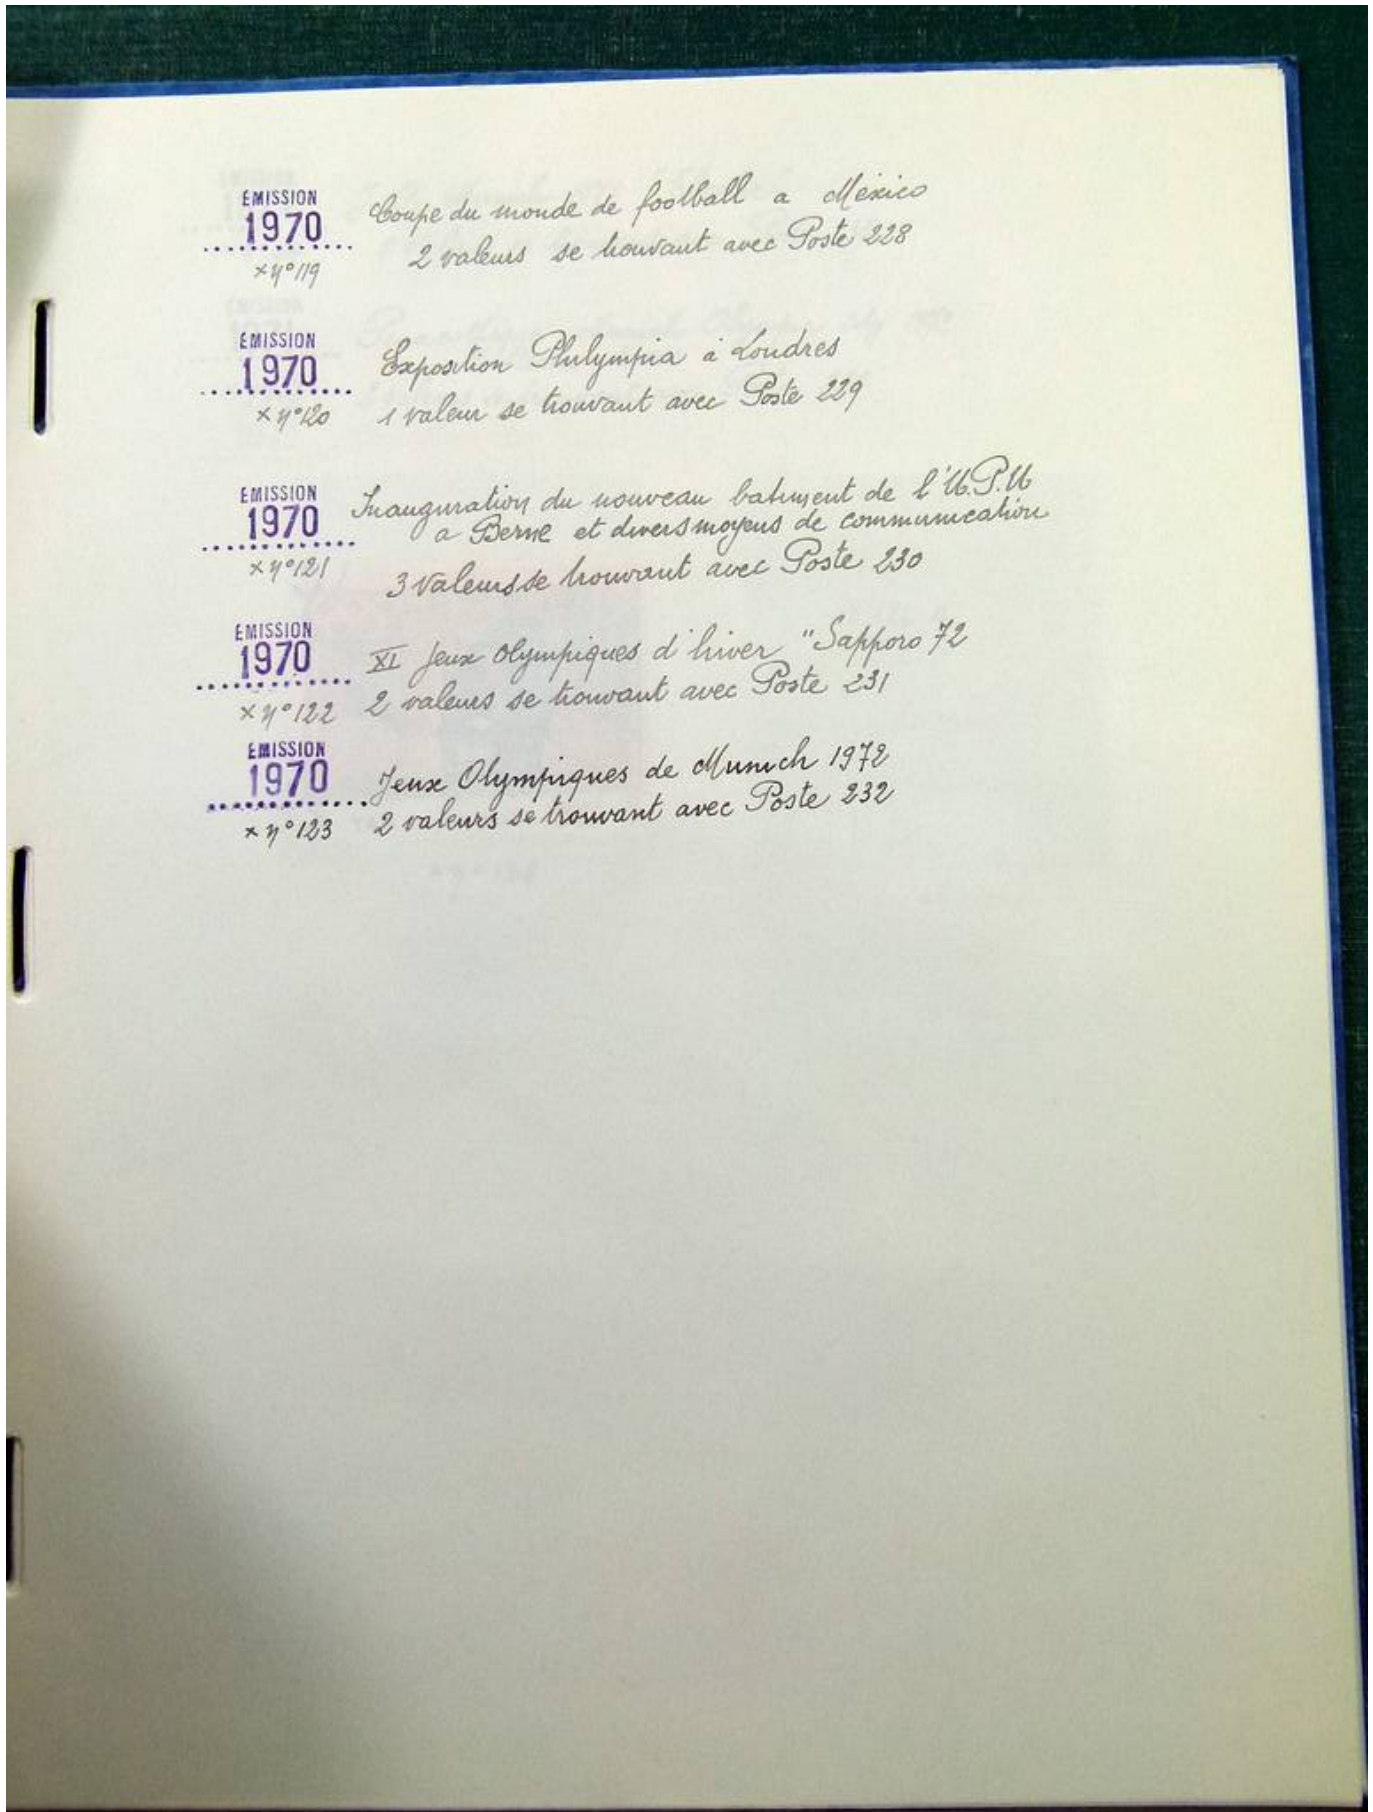 EMISSION
1970
× n° 119
Coupe du monde de football a México
2 valeurs se trouvant avec Poste 228
EMISSION
1970
× n° 120
Exposition Philympia à Londres
1 valeur se trouvant avec Poste 229
EMISSION
1970
× n° 121
Inauguration du nouveau batiment de l'U.P.U
a Berne et divers moyens de communication
3 valeurs se trouvant avec Poste 230
EMISSION
1970
× n° 122
XI Jeux Olympiques d'hiver "Sapporo 72
2 valeurs se trouvant avec Poste 231
EMISSION
1970
× n° 123
Jeux Olympiques de Munich 1972
2 valeurs se trouvant avec Poste 232